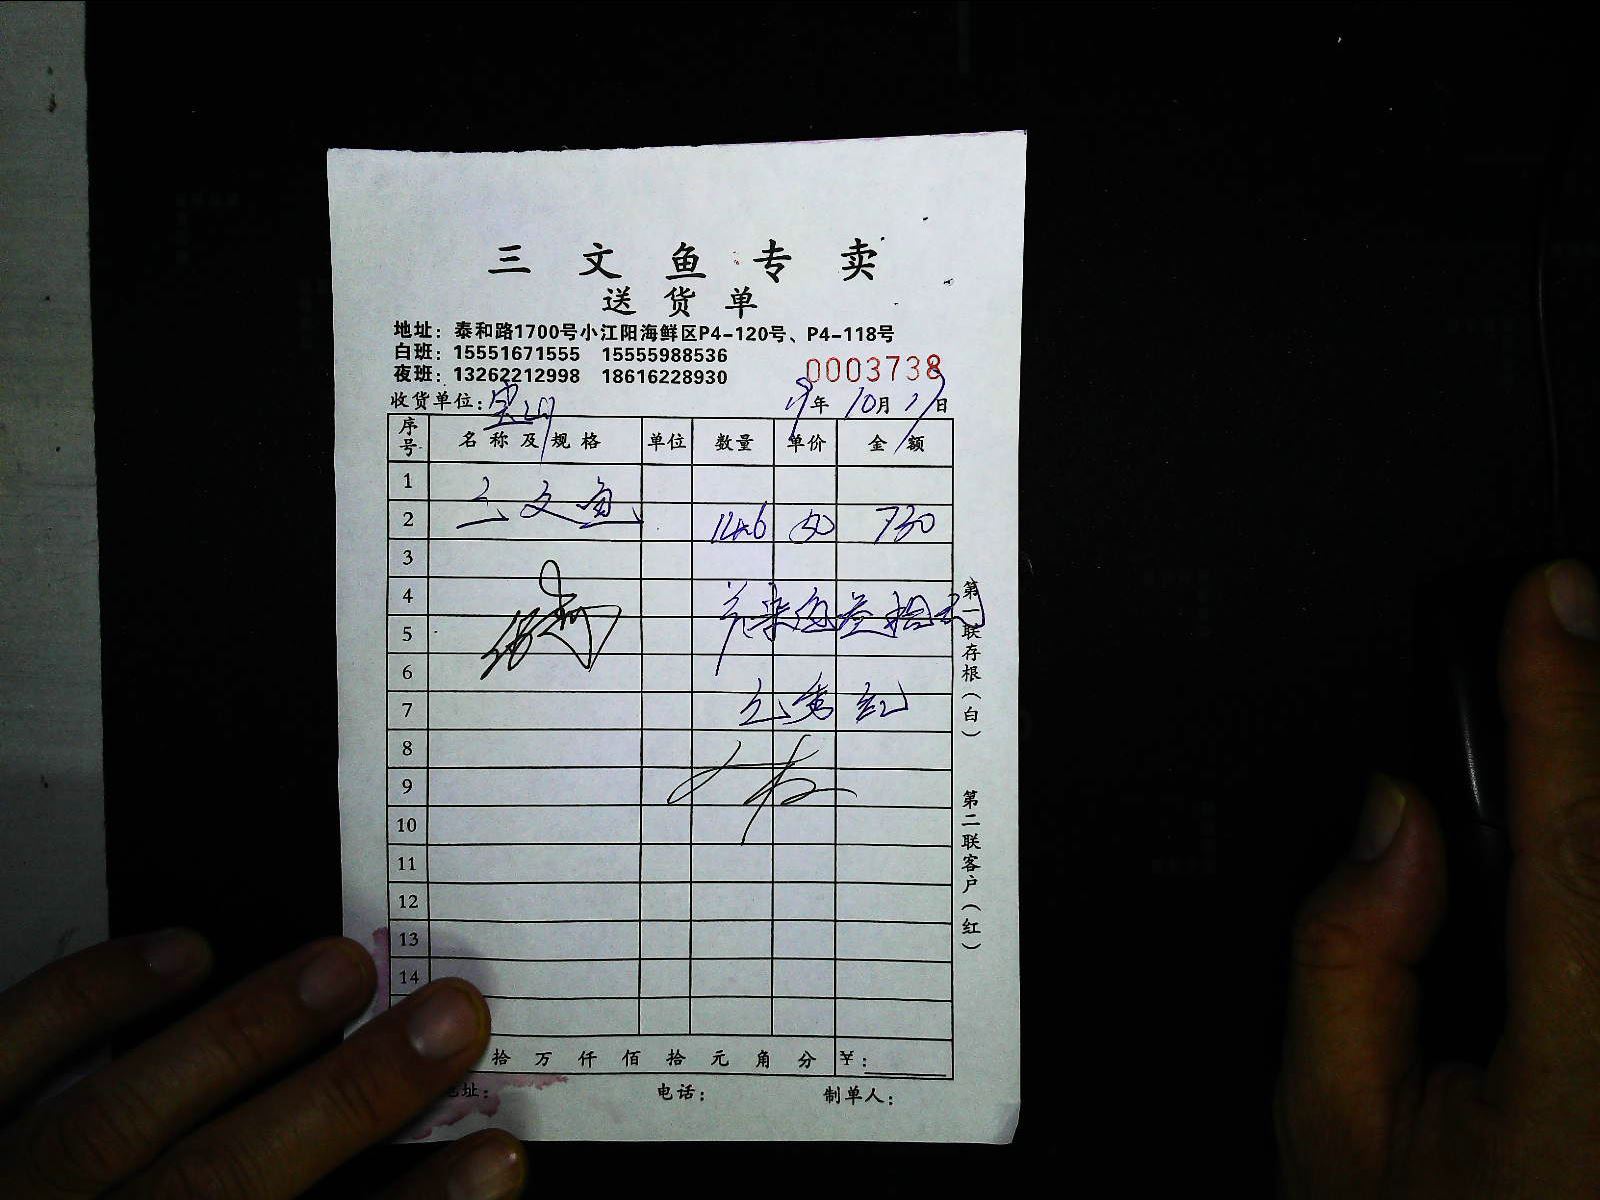 三文鱼专卖
送货单
地址：泰和路1700号小江阳海鲜区P4-120号、P4-118号
白班：15551671555 15555988536
夜班：13262212998 18616228930
0003738
收货单位：宝山 年 10月 日
序号 名称及规格 单位 数量 单价 金额
1
2 三文鱼 14.6 50 730
3
4
5
6
7
8
9
10
11
12
13
14
拾 万 仟 佰 拾 元 角 分 ¥：
地址： 电话： 制单人：
第一联存根（白）
第二联客户（红）